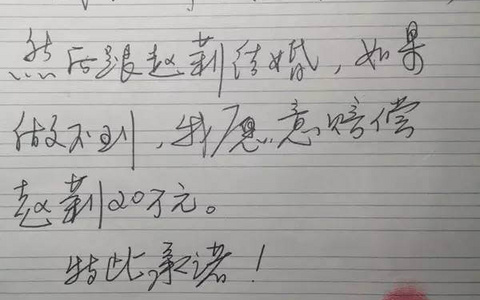 然后跟赵莉结婚，如果
做不到，我愿意赔偿
赵莉20万元。
特此承诺！